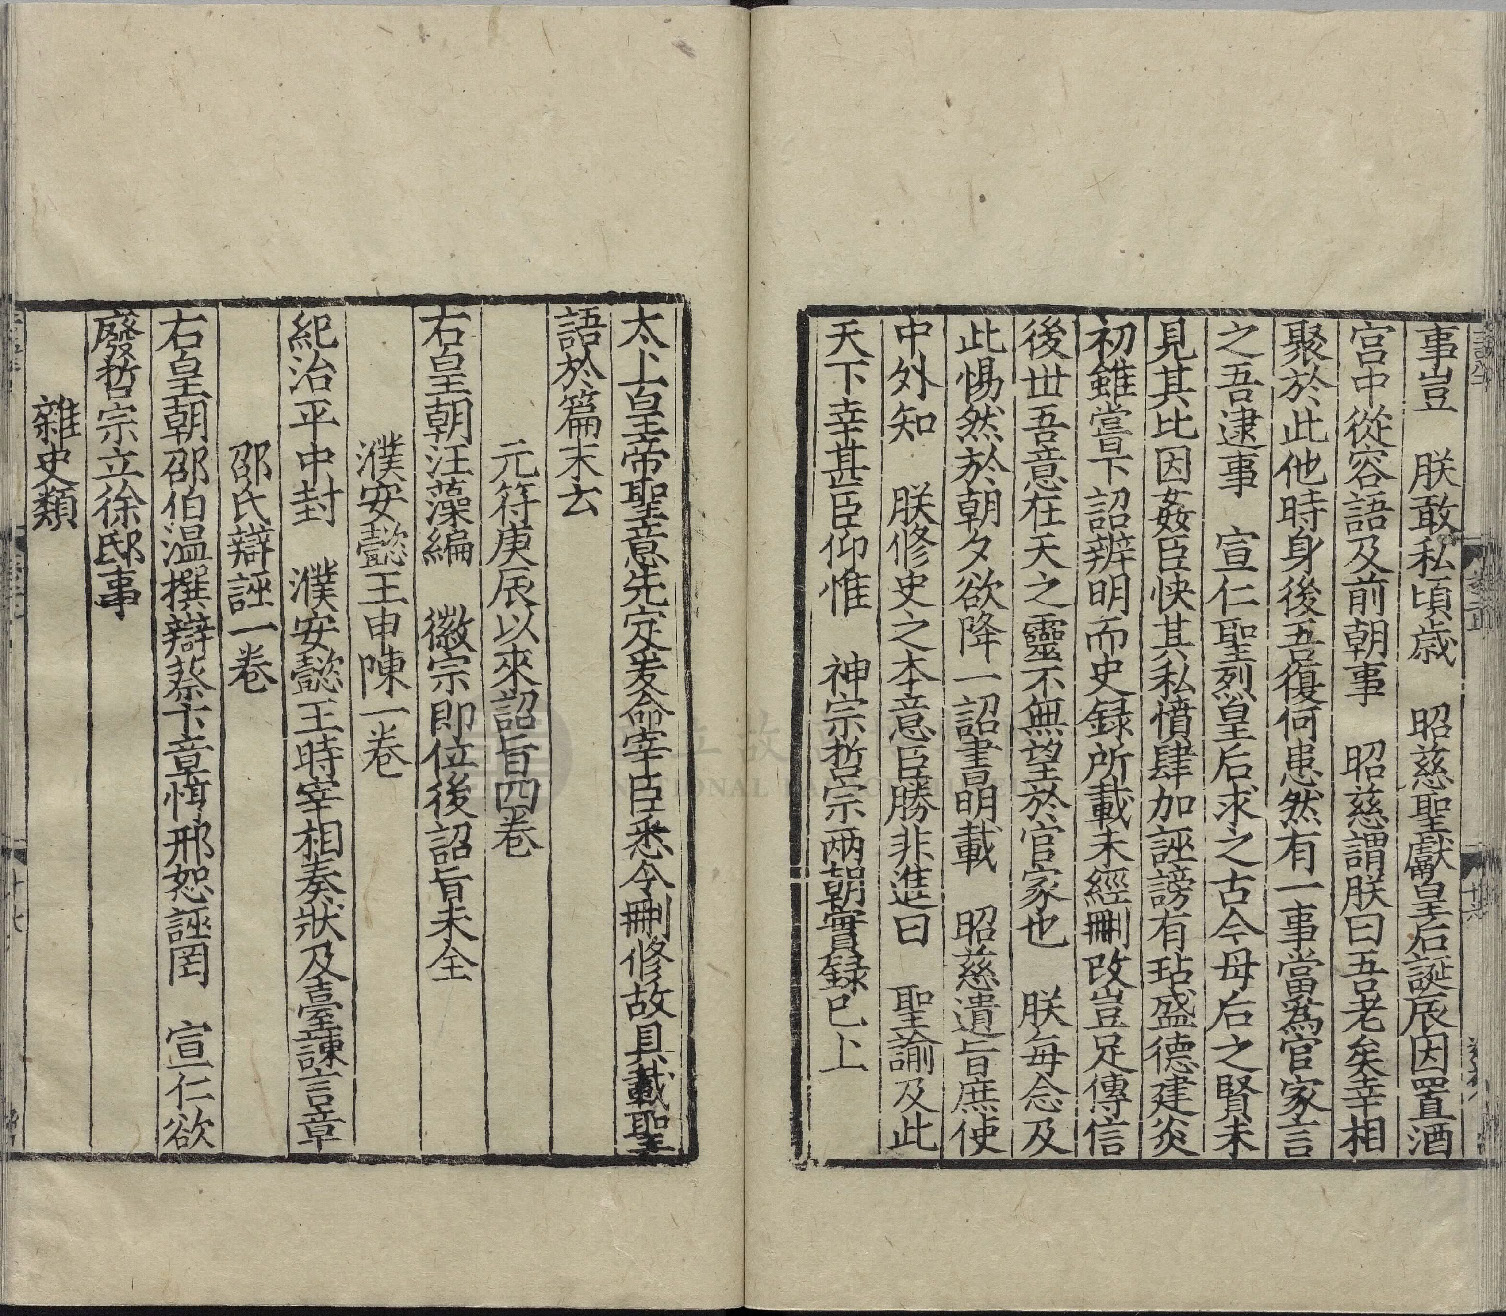 事豈　朕敢私頃歲　昭慈聖獻皇后誕辰因置酒
宮中從容語及前朝事　昭慈謂朕曰吾老矣幸相
聚於此他時身後吾復何患然有一事當為官家言
之吾逮事　宣仁聖烈皇后求之古今母后之賢未
見其比因姦臣快其私憤肆加誣謗有玷盛德建炎
初雖嘗下詔辨明而史録所載未經刪改豈足傳信
後世吾意在天之靈不無望於官家也　朕每念及
此惕然於朝夕欲降一詔書明載　昭慈遺旨庶使
中外知　朕修史之本意臣勝非進曰　聖諭及此
天下幸甚臣仰惟　神宗哲宗兩朝實録已上
太上皇帝聖意先定爰命宰臣悉令刪修故具載聖
語於篇末云
元符庚辰以來詔旨四卷
右皇朝汪藻編　徽宗即位後詔旨未全
濮安懿王申陳一卷
紀治平中封　濮安懿王時宰相奏狀及臺諫言章
邵氏辯誣一卷
右皇朝邵伯温撰辯蔡卞章惇邢恕誣罔　宣仁欲
廢哲宗立徐邸事
雜史類